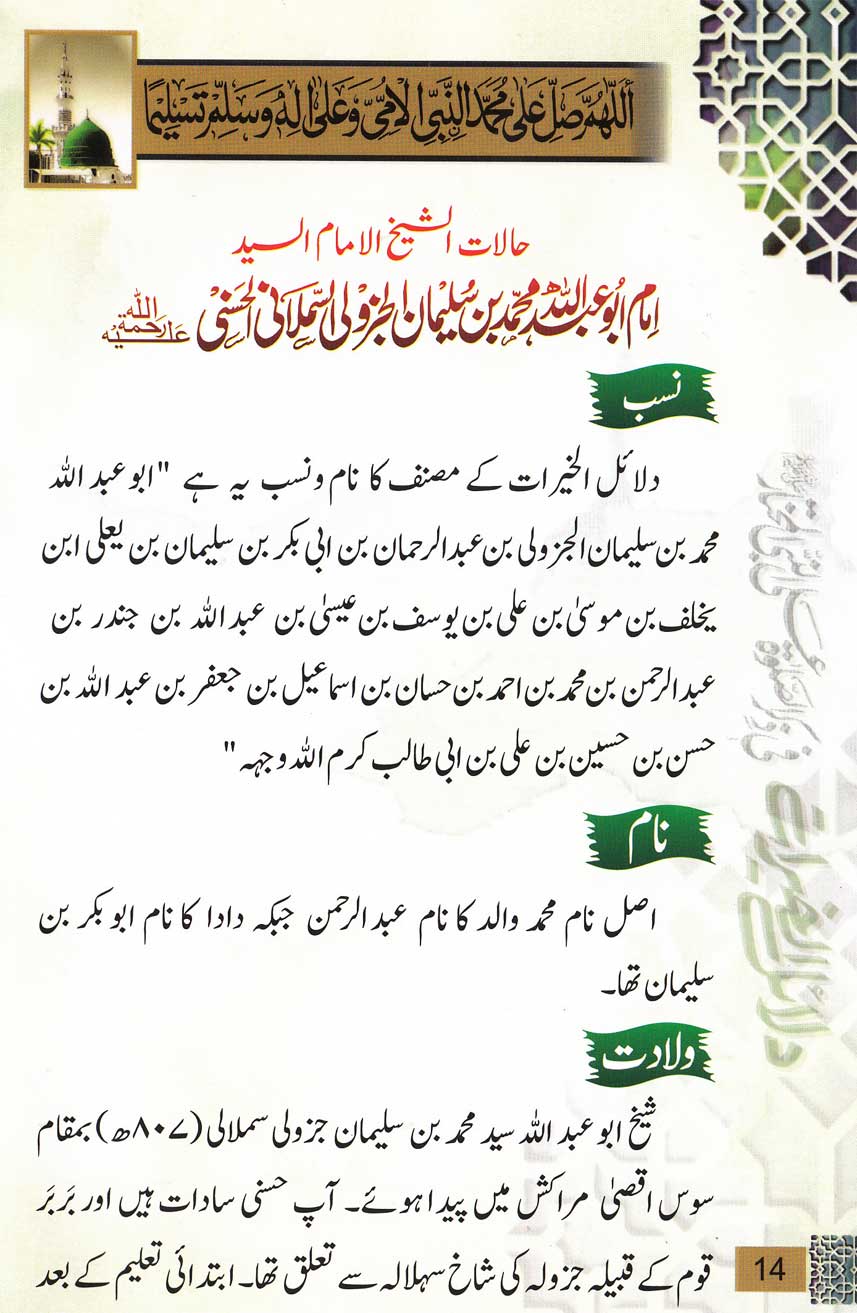 اَللّٰهُمَّ صَلِّ عَلٰی مُحَمَّدِ النَّبِيِّ الْاُمِّيِّ وَعَلٰی اٰلِهٖ وَسَلِّمْ تَسْلِيْمًا
حالات الشیخ الامام السید
امام ابو عبداللہ محمد بن سُلیمان الجزولی السّملانی الحَسَنی رحمۃ اللہ علیہ
نسب
دلائل الخیرات کے مصنف کا نام و نسب یہ ہے "ابو عبد اللہ
محمد بن سلیمان الجزولی بن عبد الرحمان بن ابی بکر بن سلیمان بن یعلی ابن
یخلف بن موسیٰ بن علی بن یوسف بن عیسیٰ بن عبد اللہ بن جندر بن
عبد الرحمن بن محمد بن احمد بن حسان بن اسماعیل بن جعفر بن عبد اللہ بن
حسن بن حسین بن علی بن ابی طالب کرم اللہ وجہہ"
نام
اصل نام محمد والد کا نام عبد الرحمن جبکہ دادا کا نام ابو بکر بن
سلیمان تھا۔
ولادت
شیخ ابو عبد اللہ سید محمد بن سلیمان جزولی سملالی (۸۰۷ھ) بمقام
سوس اقصیٰ مراکش میں پیدا ہوئے۔ آپ حسنی سادات ہیں اور بَربَر
قوم کے قبیلہ جزولہ کی شاخ سہلالہ سے تعلق تھا۔ ابتدائی تعلیم کے بعد
14
دلائل الخیرات